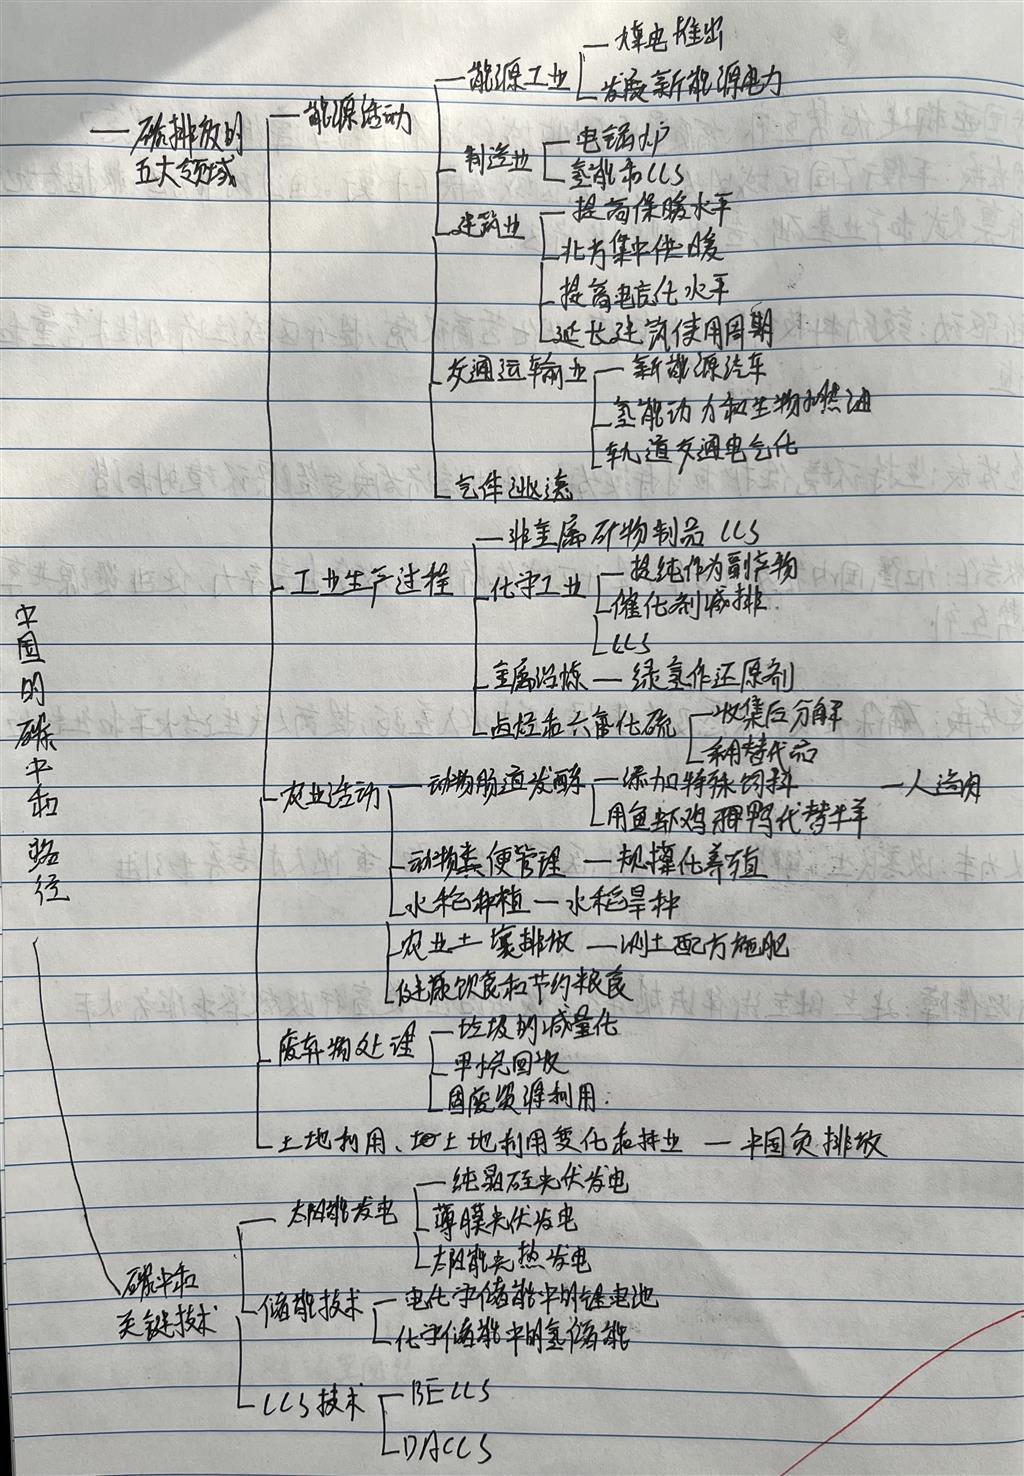 中国的碳中和路径
碳排放的
五大领域
能源活动
能源工业
煤电推出
发展新能源电力
制造业
电锅炉
氢能和CCS
建筑业
提高保暖水平
北方集中供暖
提高电气化水平
延长建筑使用周期
交通运输业
新能源汽车
氢能动力和生物燃油
轨道交通电气化
气体逃逸
工业生产过程
非金属矿物制品 CCS
化学工业
提纯作为副产物
催化剂减排.
CCS
金属冶炼 — 绿氢作还原剂
卤烃和六氟化硫
收集后分解
采用替代品
农业活动
动物肠道发酵
添加特殊饲料 — 人造肉
用鱼虾鸡鸭代替牛羊
动物粪便管理 — 规模化养殖
水稻种植 — 水稻旱种
农业土壤排放 — 测土配方施肥
健康饮食和节约粮食
废弃物处理
垃圾的减量化
甲烷回收
固废资源利用.
土地利用、土地利用变化和林业 — 中国负排放
碳中和
关键技术
太阳能发电
纯晶硅光伏发电
薄膜光伏发电
太阳能光热发电
储能技术
电化学储能中的锂电池
化学储能中的氢储能
CCS技术
BECCS
DACCS